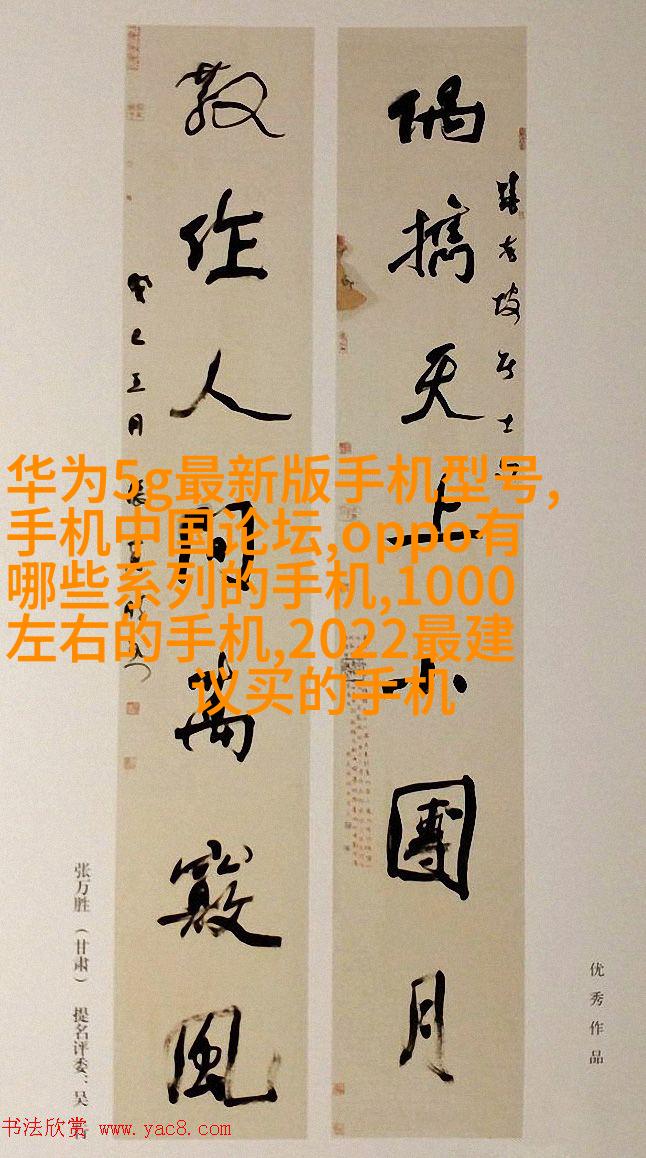 偶攜天上小團月
老坡居士
散作人間萬竅風
癸巳五月
华为5g最新版手机型号,
手机中国论坛,oppo有
哪些系列的手机,1000
左右的手机,2022最建
议买的手机
优秀作品
张万胜（甘肃） 提名评委：吴
书法欣赏 www.yac8.com